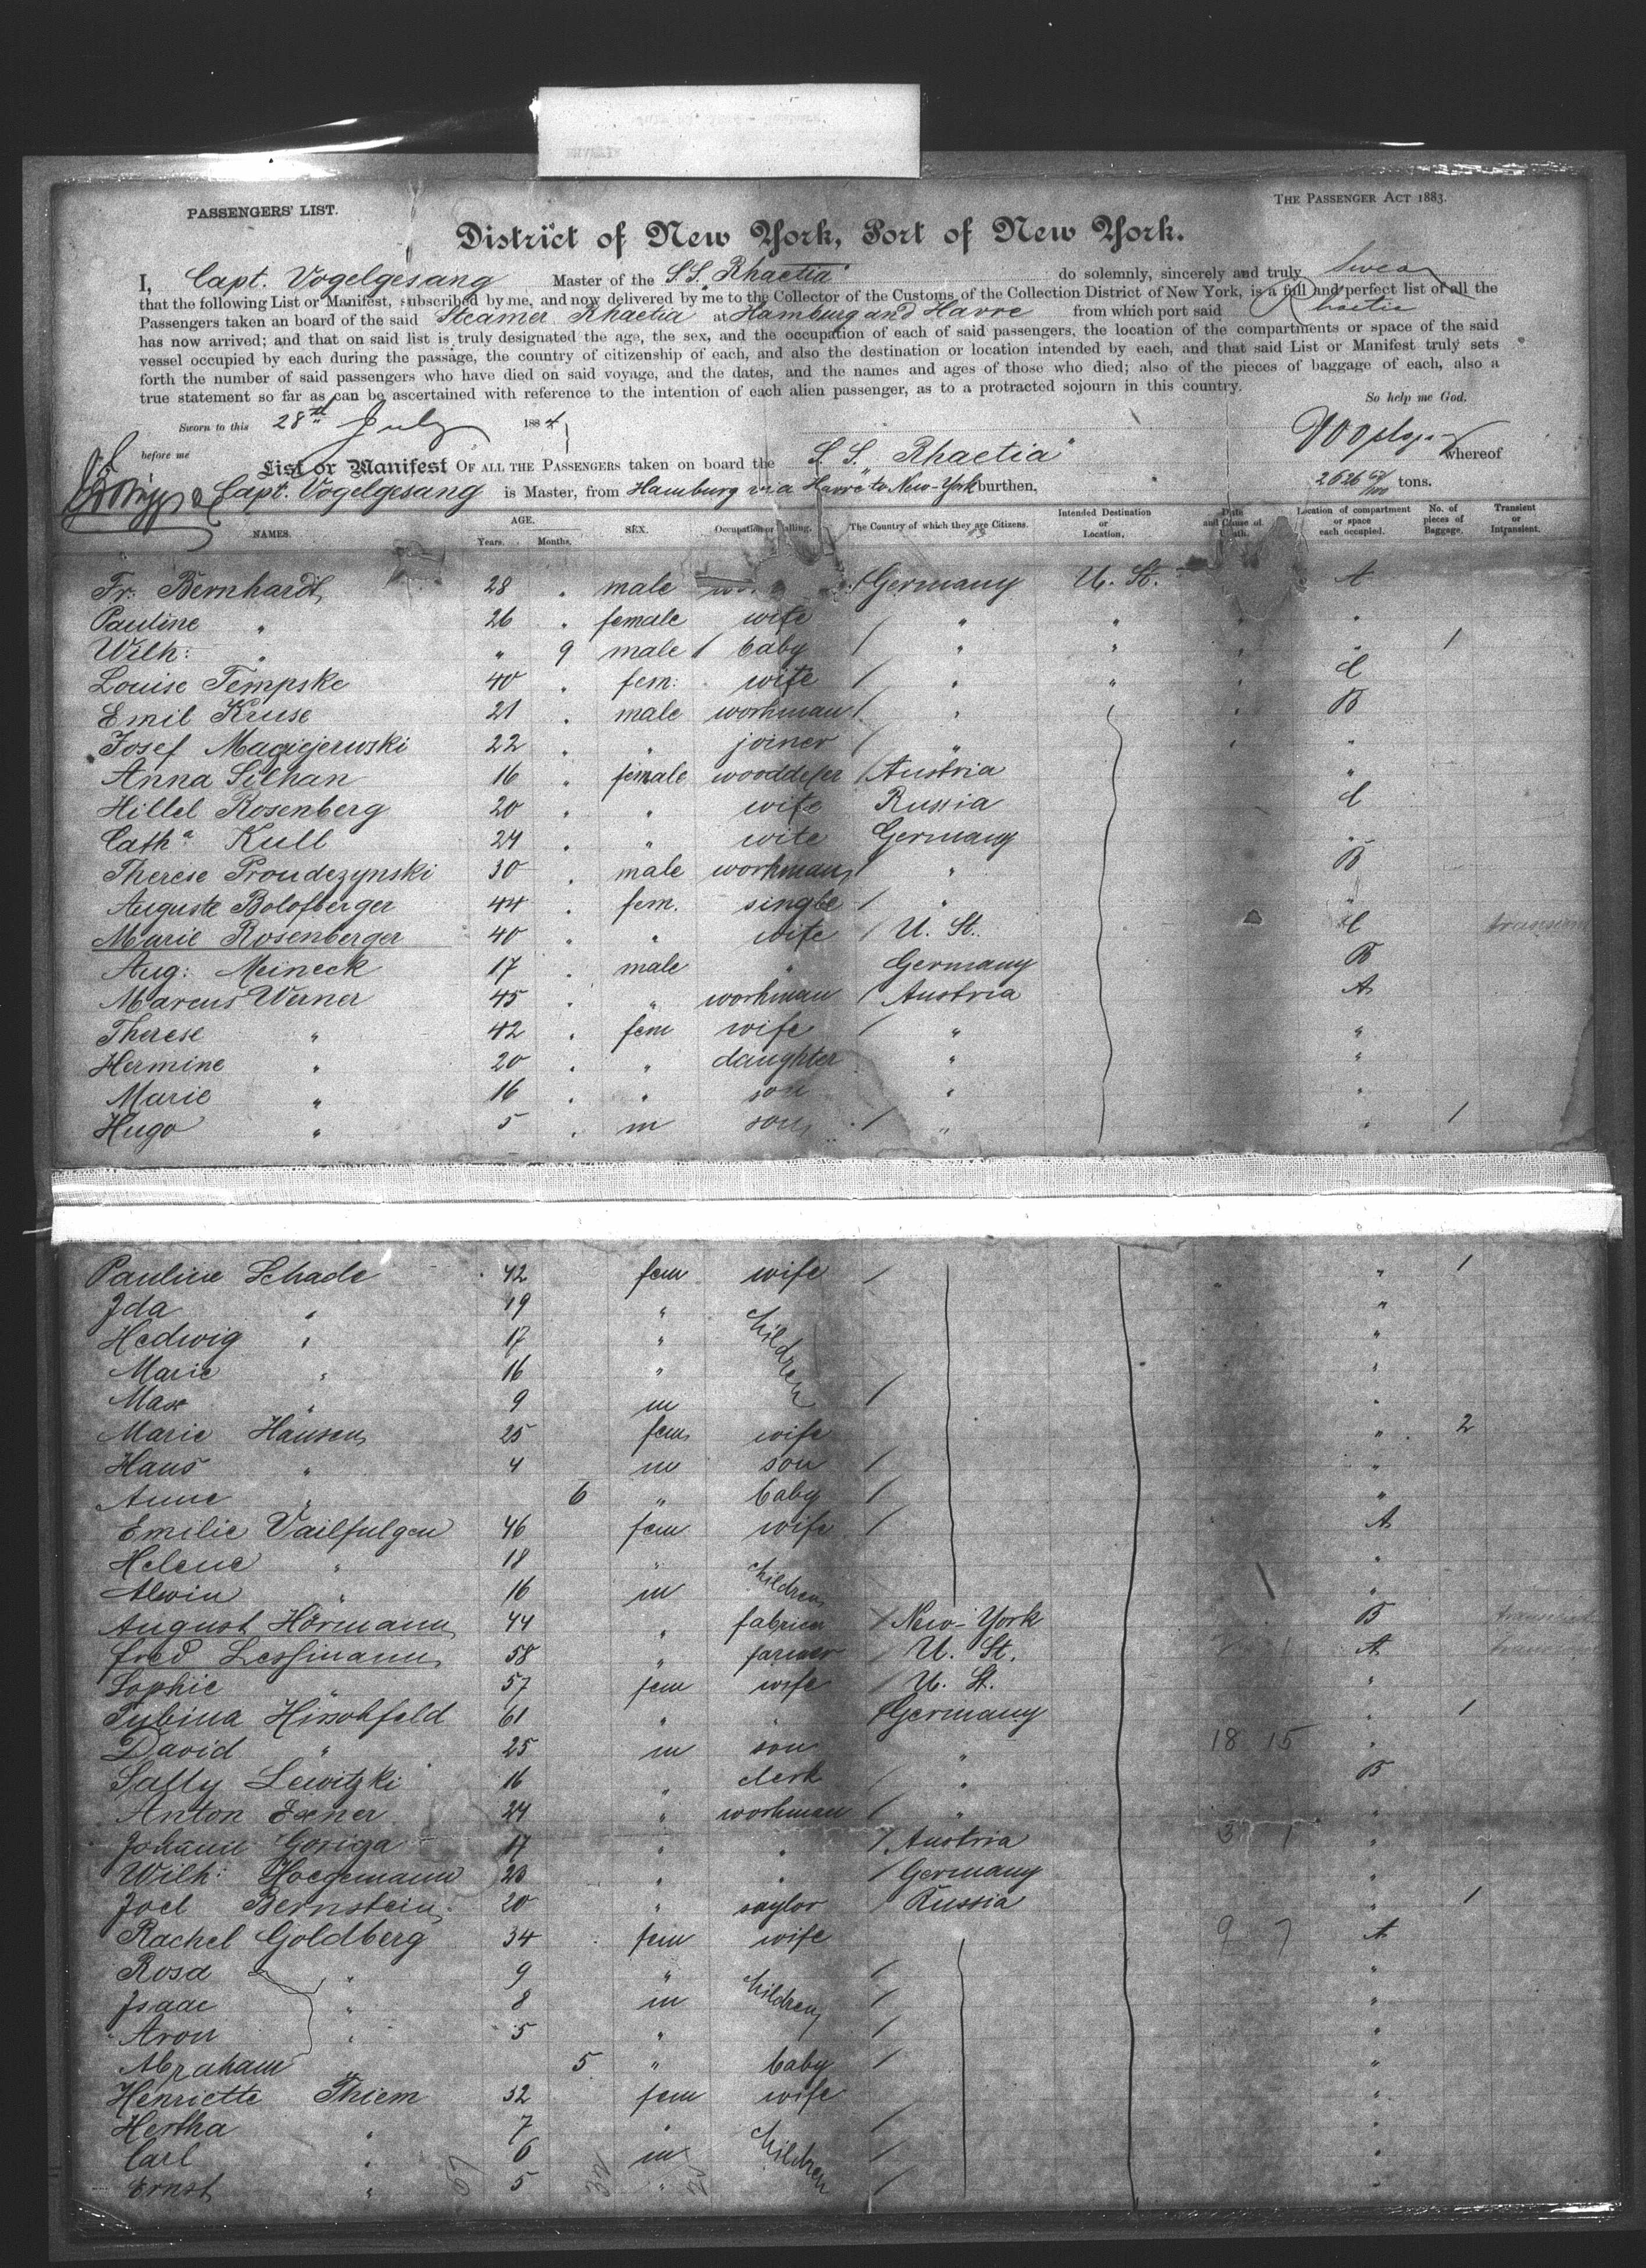 PASSENGERS' LIST.
THE PASSENGER ACT 1883.
District of New York, Port of New York.
I, Capt. Vogelgesang Master of the S.S. "Rhaetia" do solemnly, sincerely and truly swear
that the following List or Manifest, subscribed by me, and now delivered by me to the Collector of the Customs of the Collection District of New York, is a full and perfect list of all the
Passengers taken an board of the said Steamer Rhaetia at Hamburg and Havre from which port said Rhaetia
has now arrived; and that on said list is truly designated the age, the sex, and the occupation of each of said passengers, the location of the compartments or space of the said
vessel occupied by each during the passage, the country of citizenship of each, and also the destination or location intended by each, and that said List or Manifest truly sets
forth the number of said passengers who have died on said voyage, and the dates, and the names and ages of those who died; also of the pieces of baggage of each, also a
true statement so far as can be ascertained with reference to the intention of each alien passenger, as to a protracted sojourn in this country.
So help me God.
Sworn to this 28th July 1884
before me
List or Manifest OF ALL THE PASSENGERS taken on board the S.S. "Rhaetia" whereof
Capt. Vogelgesang is Master, from Hamburg via Havre to New-York burthen, 2626 tons.
NAMES. AGE. Years. Months. SEX. Occupation or Calling. The Country of which they are Citizens. Intended Destination or Location. Date and Cause of Death. Location of compartment or space each occupied. No. of pieces of Baggage. Transient or Intransient.
Fr: Bernhardt 28 " male Germany U. St. A
Pauline " 26 " female wife / " " " "
Wilh: " " 9 male / baby / " " " " 1
Louise Tempske 40 " fem: wife / " " " C
Emil Kruse 21 " male workman / " " B
Josef Magiejewski 22 " " joiner / " " "
Anna Silhan 16 " female / Austria "
Hillel Rosenberg 20 " " wife Russia C
Catha Kull 24 " " wife Germany "
Therese Proudezynski 30 " male workman / " B
Auguste Bolofberger 44 " fem. single / " "
Marie Rosenberger 40 " " wife / U. St. C
Aug: Meineck 17 " male " Germany B
Marcus Werner 45 " " workman / Austria A
Therese " 42 " fem wife / " "
Hermine " 20 " " daughter " "
Marie " 16 " " son " "
Hugo " 5 " m son / " " 1
Pauline Schade 42 fem wife / " 1
Ida " 19 " children "
Hedwig " 17 " "
Marie " 16 " "
Max " 9 m / "
Marie Hansen 25 fem wife " 2
Hans " 4 m son / "
Anne " 6 " baby / "
Emilie Vailfulgen 46 fem wife / A
Helene " 18 " children "
Alwin " 16 m "
August Hörmann 44 " / New-York B
Fred Lessmann 58 " farmer / U. St. A
Sophie " 57 fem wife / U. St. "
Hirschfeld 61 " " / Germany " 1
David " 25 m son " 18 15 "
Sally Lewitzki 16 " clerk / " B
Anton Exner 24 " workman / " "
Johann Goriga 17 " " / Austria 3 1 "
Wilh: Hoegemann " " / Germany "
Joel Bernstein 20 " saylor / Russia " 1
Rachel Goldberg 34 fem wife 9 7 A
Rosa " 9 " children / "
Isaac " 8 m / "
Aron " 5 " / "
Abraham 5 " baby / "
Henriette Thiem 32 fem wife "
Hertha " 7 " children / "
Carl " 6 m / "
Ernst " 5 " / "